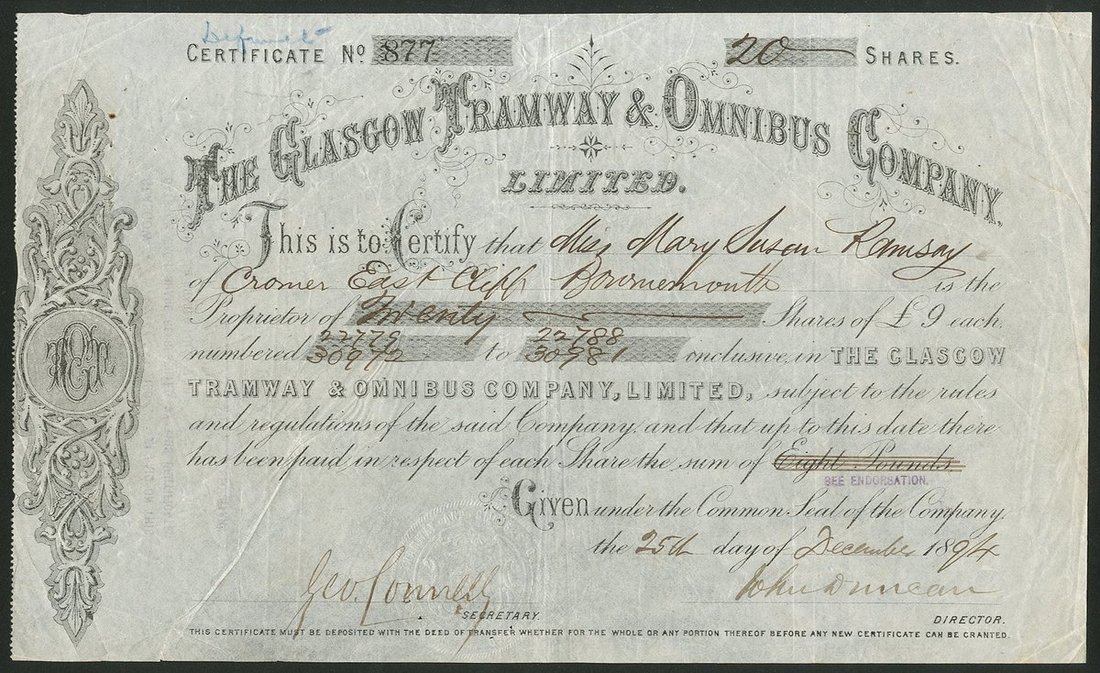 CERTIFICATE No 877 20 SHARES.
THE GLASGOW TRAMWAY & OMNIBUS COMPANY,
LIMITED.
This is to Certify that Miss Mary Susan Ramsay
of Cromer East Cliff Bournemouth is the
Proprietor of Twenty Shares of £9 each,
22779 22788
numbered 30972 to 30981 inclusive, in THE GLASGOW
TRAMWAY & OMNIBUS COMPANY, LIMITED, subject to the rules
and regulations of the said Company, and that up to this date there
has been paid in respect of each Share the sum of Eight Pounds.
SEE ENDORSATION.
Given under the Common Seal of the Company,
the 25th day of December 1894
Geo. Connell John Duncan
SECRETARY. DIRECTOR.
THIS CERTIFICATE MUST BE DEPOSITED WITH THE DEED OF TRANSFER WHETHER FOR THE WHOLE OR ANY PORTION THEREOF BEFORE ANY NEW CERTIFICATE CAN BE GRANTED.